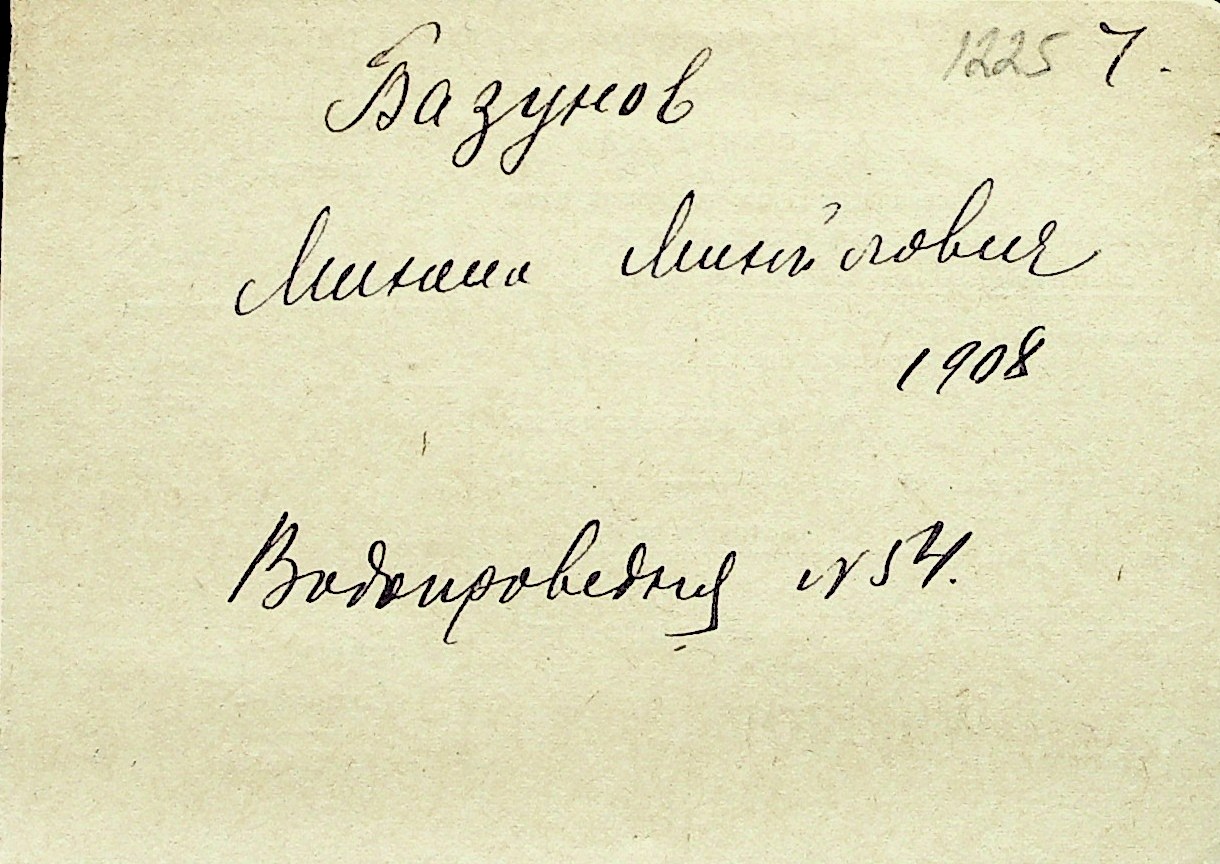 1225 7.
Базунов
Михаил Михайлович
1908
Водопроводная №54.